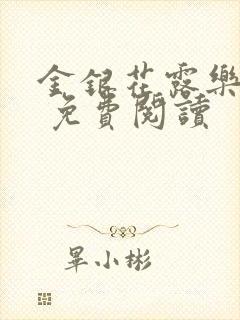 金銀花露樂
免費閱讀
畢小彬